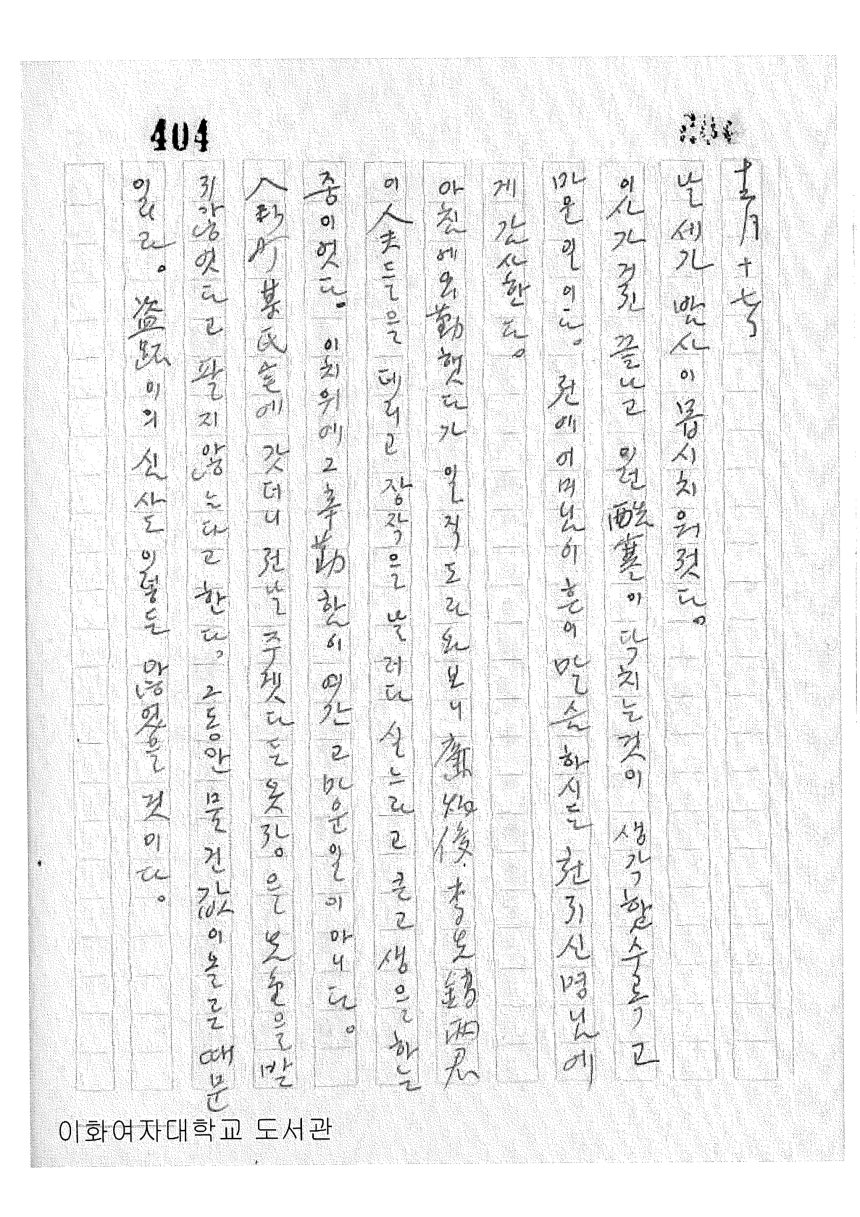 404
날세가 밤사이 몹시 치워젓다。
이사가 겨진 끝나고 이런 酷寒이 닥치는것이 생각할수록 고
마운일이다。 전에 어머님이 흔이 말슴하시든 천지신명님에
게 감사한다。
아침에 出勤햇다가 일직 도라와보니 李 兩君
이 人夫들을 데리고 장작을 날러다 싯느라고 큰고생을 하는
중이엇다。 이치위에 그 勤함이 여간 고마운일이 아니다。
人 町 某氏宅에 갓더니 전날 주겟다든 옷장은 발
지않엇다고 팔지않는다고 한다。 그동안 물건값이올른 때문
일러라。 盜跖이의 심사도 이렇든 않엇을 것이다。
이화여자대학교 도서관